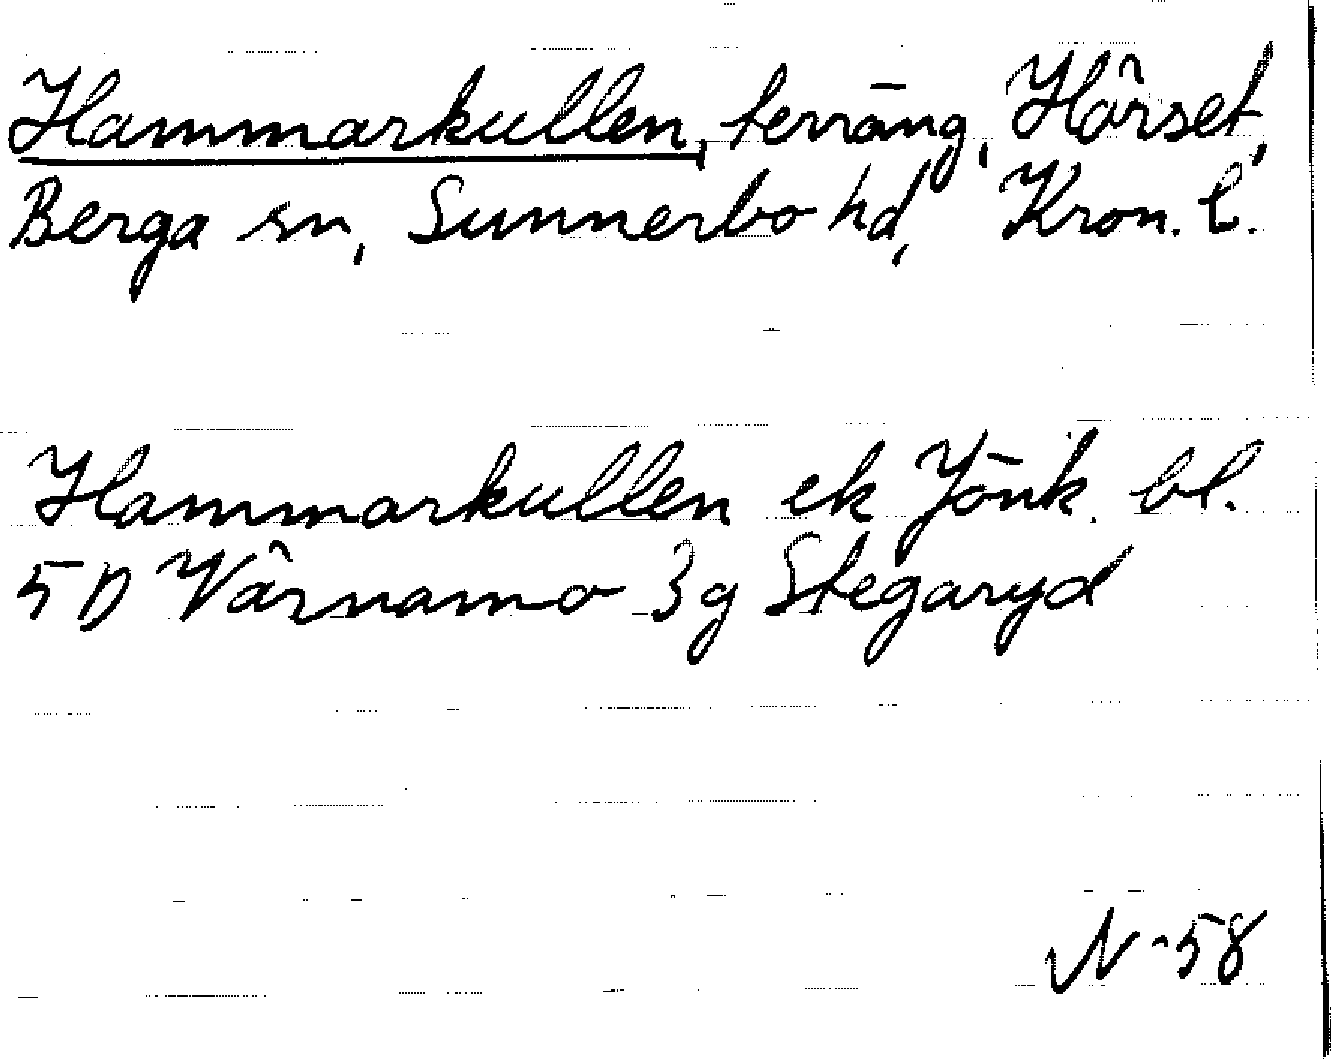 Hammarkullen, terräng, Hörset,
Berga sn, Sunnerbo hd, Kron. l.
Hammarkullen ek Jönk. bl.
5D Värnamo 3g Stegaryd
N-58